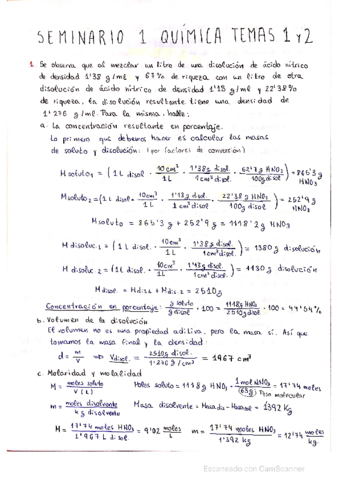 SEMINARIO 1 QUÍMICA TEMAS 1 y 2
1. Se observa que al mezclar un litro de una disolución de ácido nítrico
de densidad 1'38 g/ml y 62'7% de riqueza con un litro de otra
disolución de ácido nítrico de densidad 1'13 g/ml y 22'38%
de riqueza, la disolución resultante tiene una densidad de
1'276 g/ml. Para la misma, halle:
a. La concentración resultante en porcentaje.
Lo primero que debemos hacer es calcular las masas
de soluto y disolución: (por factores de conversión)
M soluto 1 = (1 L disol · 10³cm³/1L · 1'38g disol./1cm³ disol. · 62'7g HNO₃/100g disol) = 865'3 g HNO₃
M soluto 2 = (1 L disol · 10³cm³/1L · 1'13g disol./1cm³ disol · 22'38g HNO₃/100g disol) = 252'9 g HNO₃
M soluto = 865'3 g + 252'9 g = 1118'2 g HNO₃
M disoluc. 1 = (1 L disol. · 10³cm³/1L · 1'38g disol./1cm³ disol.) = 1380 g disolución
M disoluc. 2 = (1 L disol · 10³cm³/1L · 1'13g disol./1cm³ disol.) = 1130 g disolución
M disol. = M dis.1 + M dis.2 = 2510g
Concentración en porcentaje: g soluto/g disol · 100 = 1118g HNO₃/2510g disol · 100 = 44'54%
b. Volumen de la disolución
El volumen no es una propiedad aditiva, pero la masa sí. Así que
tomamos la masa final y la densidad:
d = m/v ⇒ V disol. = 2510g disol./1'276 g/cm³ = 1967 cm³
c. Molaridad y molalidad
M = moles soluto/V (L) Moles soluto = 1118 g HNO₃ · 1 mol HNO₃/(63g) Peso molecular = 17'74 moles
m = moles disolvente/kg disolvente Masa disolvente = = 1392 Kg
M = 17'74 moles HNO₃/1'967 L disol. = 9'02 moles/L m = 17'74 moles HNO₃/1'392 kg = 12'74 moles/kg.
Escaneado con CamScanner